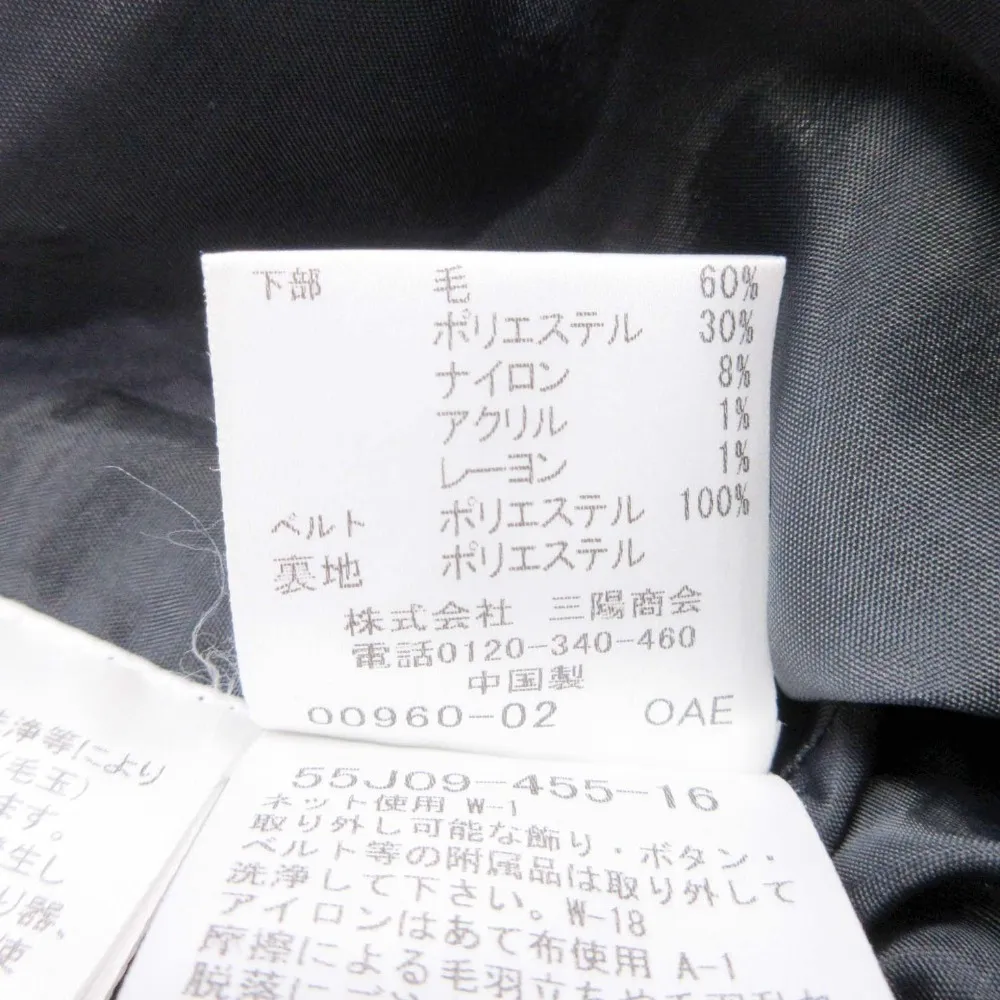 下部 毛 60%
ポリエステル 30%
ナイロン 8%
アクリル 1%
レーヨン 1%
ベルト ポリエステル 100%
裏地 ポリエステル
株式会社 三陽商会
電話0120-340-460
中国製
00960-02 OAE
55J09-455-16
ネット使用 W-1
取り外し可能な飾り・ボタン・
ベルト等の附属品は取り外して
洗浄して下さい。W-18
アイロンはあて布使用 A-1
摩擦による毛羽立ちや毛
脱落に
洗浄等により
(毛玉)
ます。
発生し
り器、
使